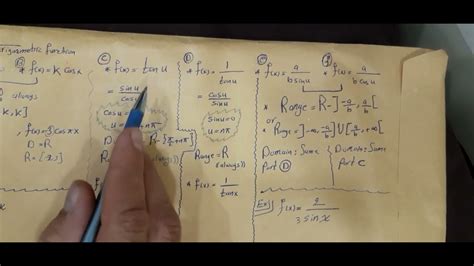 Trigonometric function
B) * f(x) = k cosx
always
D = R
C) * f(x) = tan u
= sin u / cos u
cos u =
u =
D =
R
D) * f(x) = 1 / tan u
= cos u / sin u
sin u = 0
u = nπ
Range = R
(always)
* f(x) = 1 / tan x
e) * f(x) = a / b sin u
f) f(x) = a / b cos u
* Range = R - ]-a/b, a/b[
or
* Range = ]-∞, -a/b] U [a/b, +∞[
Domain: Same
part D
Domain: Same
part C
Ex) f(x) = 2 / 3 sin x